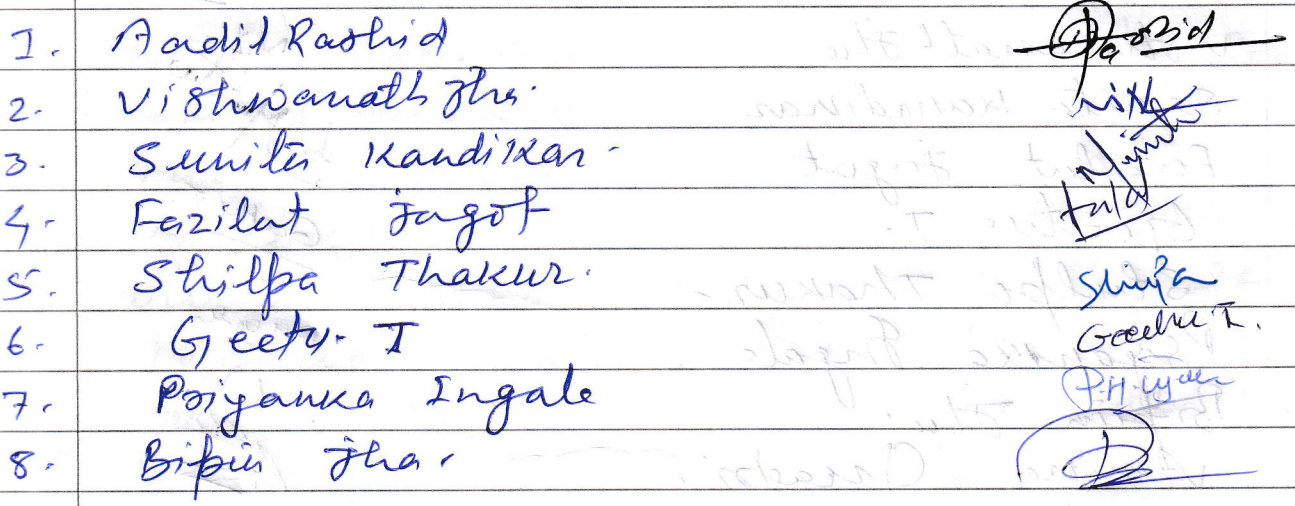 1. Aadil Rashid Rashid
2. Vishwanath Jha.
3. Sunita Kandikar.
4. Fazilat Jagof
5. Shilpa Thakur. Shilpa
6. Geetu. I Geethu I.
7. Priyanka Ingale
8. Bipin Jha.